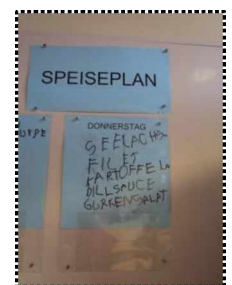 SPEISEPLAN
UPPE
DONNERSTAG
SEELACHS
FILET
KARTOFFELN
DILLSAUCE
GURKENSALAT